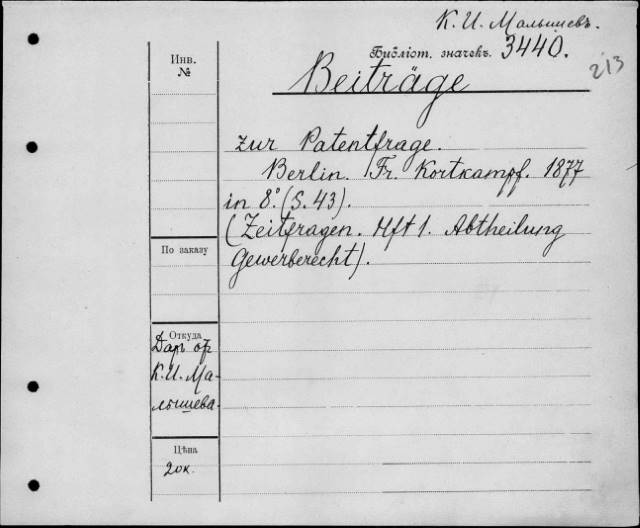 К. И. Малышевъ.
Библіот. значекъ. 3440.
213
Инв.
№
Beiträge
zur Patentfrage.
Berlin. Fr. Kortkampf. 1877
in 8.° (S. 43).
(Zeitfragen. Hft 1. Abtheilung
Gewerberecht).
По заказу
Откуда
Даръ от
К. И. Ма-
лышева.
Цѣна
20к.